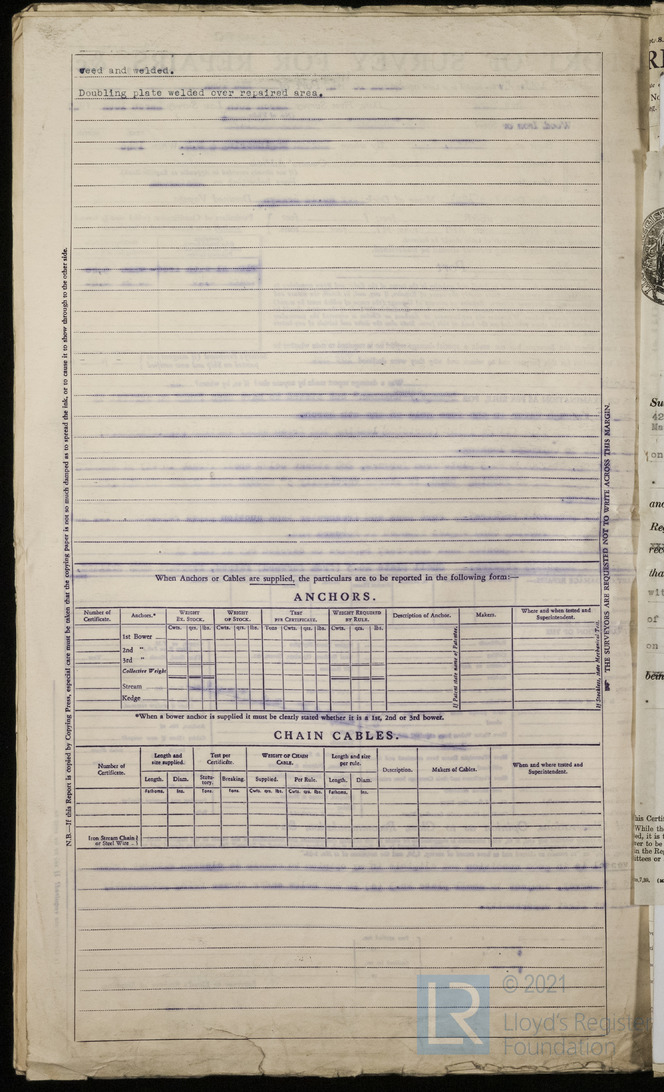 veed and welded.
Doubling plate welded over repaired area.
When Anchors or Cables are supplied, the particulars are to be reported in the following form:—
ANCHORS.
Number of Certificate.
Anchors.*
WEIGHT EX. STOCK.
WEIGHT OF STOCK.
TEST PER CERTIFICATE.
WEIGHT REQUIRED BY RULE.
Description of Anchor.
Makers.
Where and when tested and Superintendent.
Cwts. qrs. lbs. Cwts. qrs. lbs. Tons Cwts. qrs. lbs. Cwts. qrs. lbs.
1st Bower
2nd "
3rd "
Collective Weight
Stream
Kedge
If Patent state name of Patentee.
If Stockless, state Mechanical Test.
*When a bower anchor is supplied it must be clearly stated whether it is a 1st, 2nd or 3rd bower.
CHAIN CABLES.
Number of Certificate.
Length and size supplied.
Test per Certificate.
WEIGHT OF CHAIN CABLE.
Length and size per rule.
Description.
Makers of Cables.
When and where tested and Superintendent.
Length. Diam. Statutory. Breaking. Supplied. Per Rule. Length. Diam.
Fathoms. Ins. Tons. Tons. Cwts. qrs. lbs. Cwts. qrs. lbs. Fathoms. Ins.
Iron Stream Chain
or Steel Wire ..
N.B.—If this Report is copied by Copying Press, especial care must be taken that the copying paper is not so much damped as to spread the ink, or to cause it to show through to the other side.
THE SURVEYORS ARE REQUESTED NOT TO WRITE ACROSS THIS MARGIN.
LR
© 2021
Lloyd's Register
Foundation